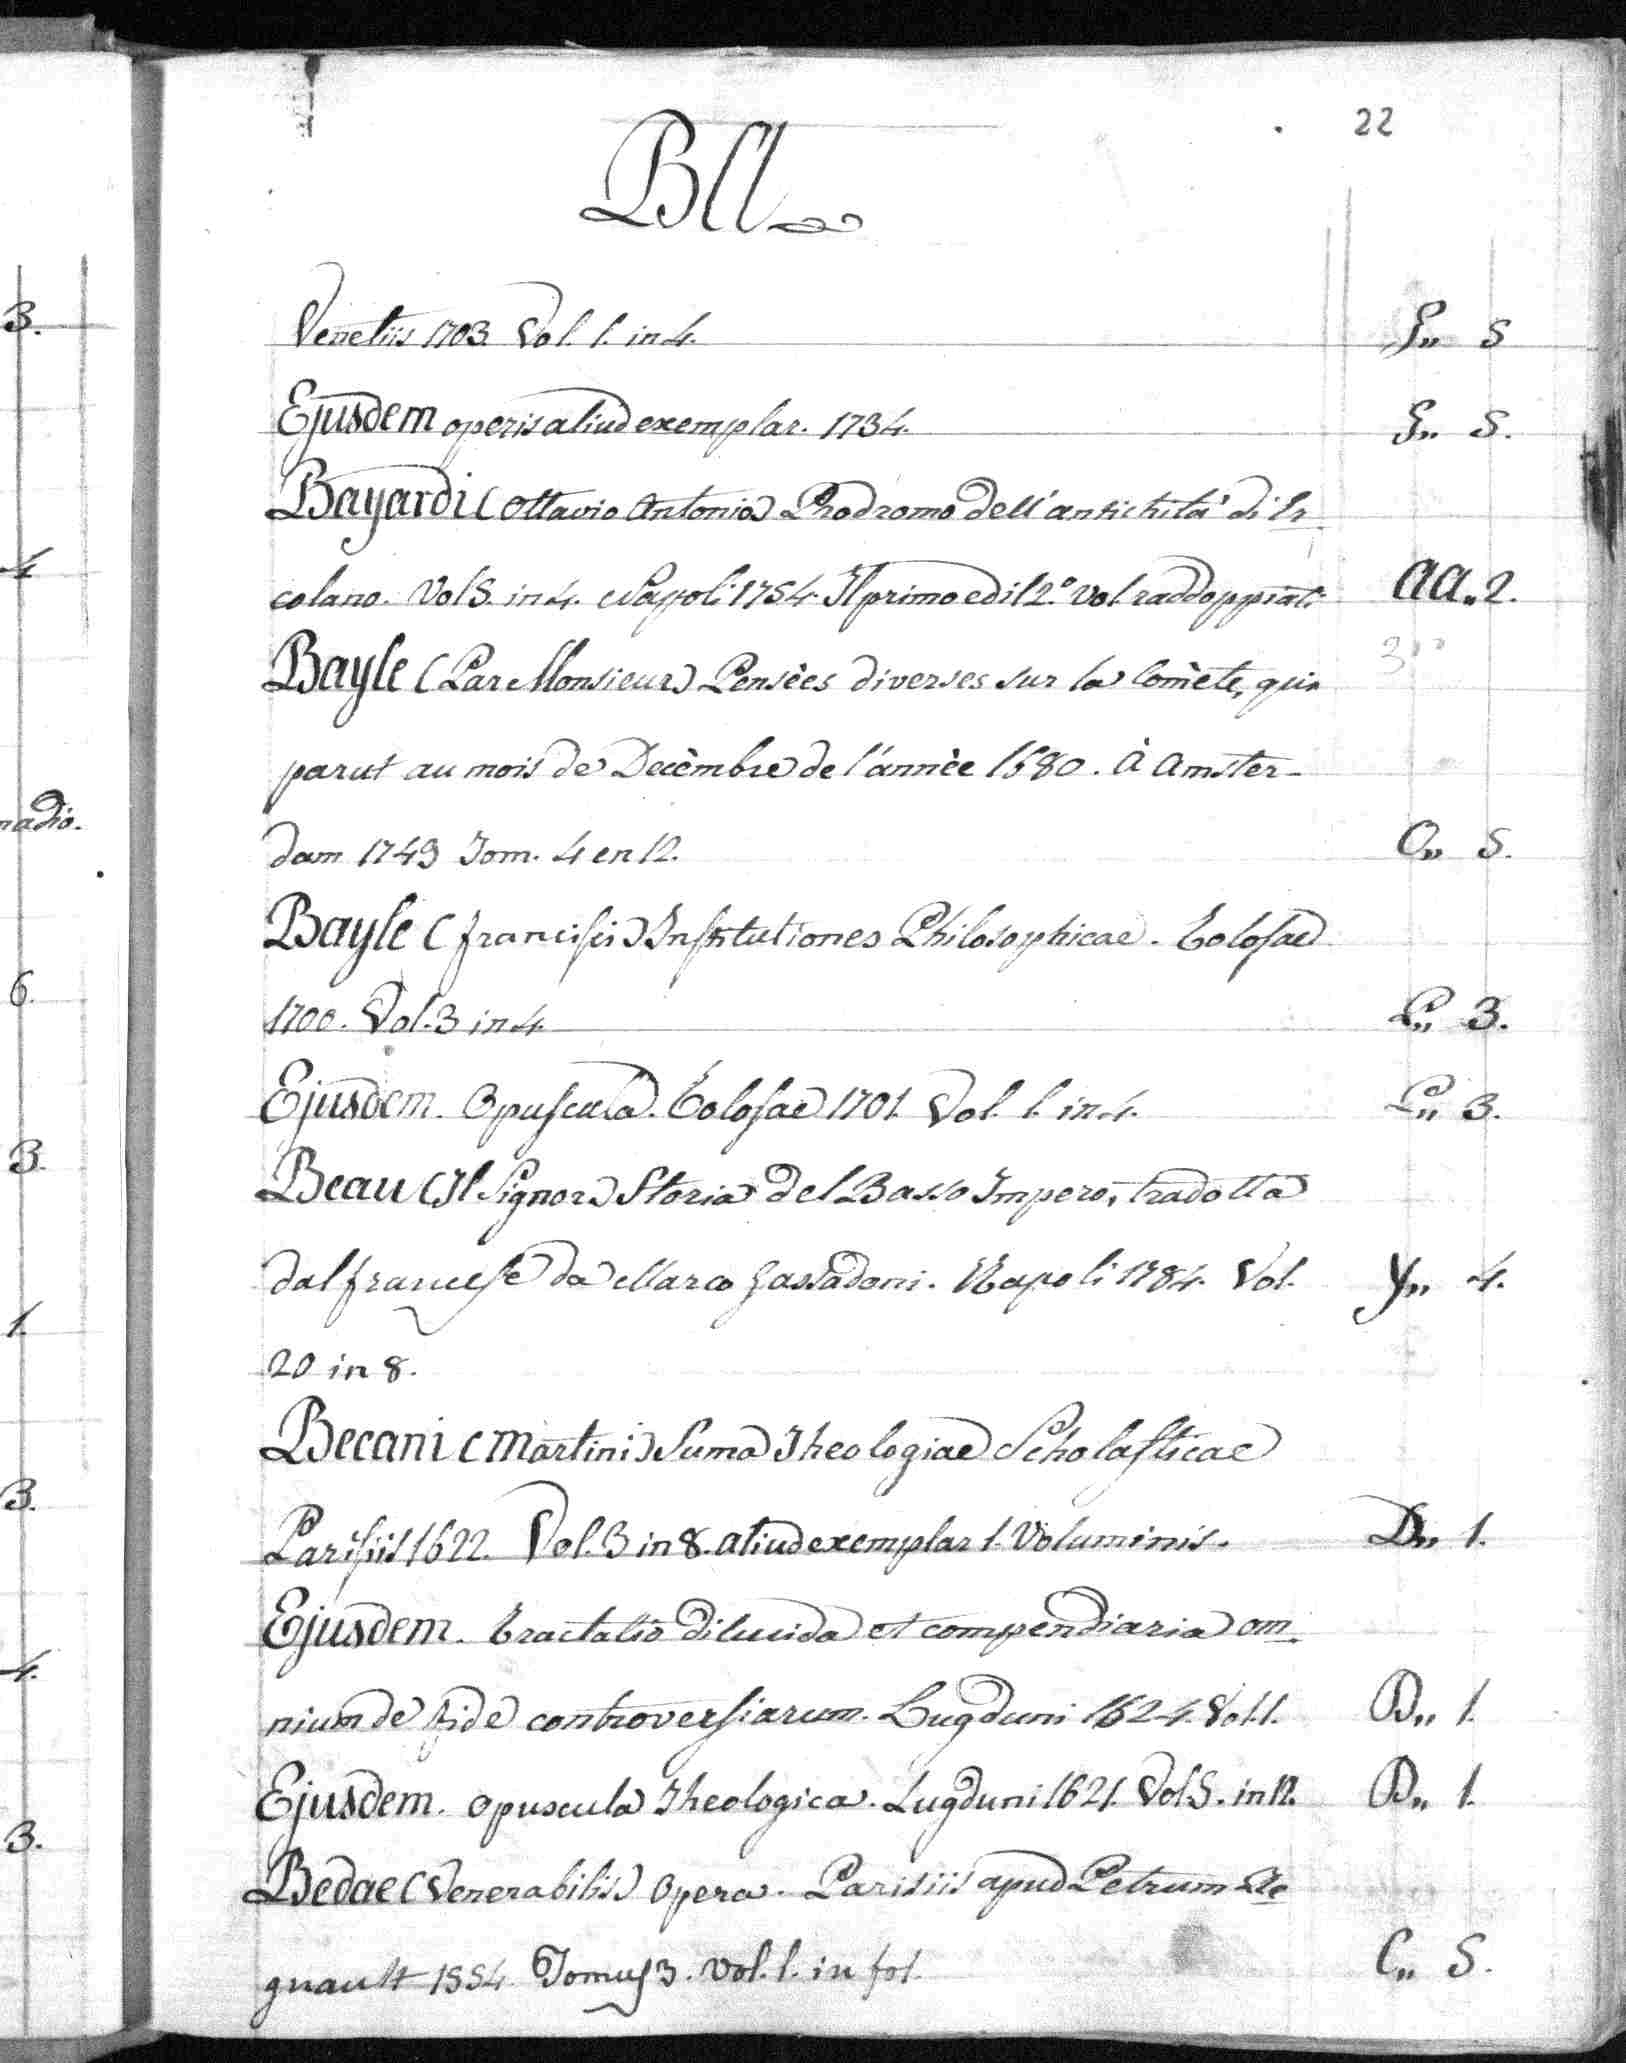 22
BA
Venetiis 1703. Vol. 1. in 4. G,, 5
Ejusdem operis aliud exemplar. 1734. G,, 5.
Bayardi (Ottavio Antonio) Prodromo dell'antichità di Er-
colano. Vol 5. in 4. Napoli 1754. Il primo ed il 2.º vol. raddoppiati AA,, 2.
Bayle (Par Monsieur) Pensèes diverses sur la Comète, qui
parut au mois de Decèmbre de l'annèe 1680. À Amster-
dam 1749 Tom. 4 en 12. O,, 5.
Bayle (Francisci) Institutiones Philosophicae. Tolosae
1700. Vol. 3 in 4. P,, 3.
Ejusdem. Opuscula. Tolosae 1701. Vol. 1. in 4. P,, 3.
Beau (Il Signor) Storia del Basso Impero, tradotta
dal francese da Marco Fassadoni. Napoli 1784. Vol. Y,, 4.
20 in 8.
Becani (Martini) Suma Theologiae Scholasticae
Parisiis 1622. Vol. 3 in 8. aliud exemplar 1. Voluminis. D,, 1.
Ejusdem. Tractatio dilucida et compendiaria om-
nium de Fide controversiarum. Lugduni 1624. Vol. 1. D,, 1.
Ejusdem. Opuscula Theologica. Lugduni 1621. Vol 5. in 12. D,, 1.
Bedae (Venerabilis) Opera. Parisiis apud Petrum Re-
gnault 1554. Tomus 3. Vol. 1. in fol. C,, 5.
3.
4
nadio.
6.
3.
1.
3.
4.
3.